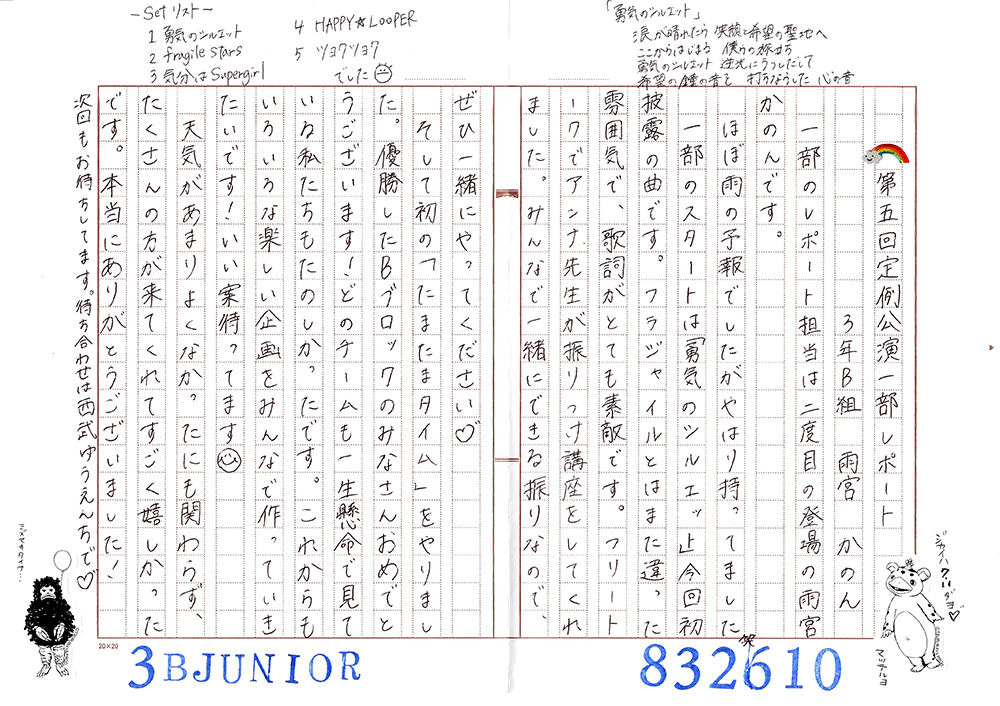 -Setリスト-
1 勇気のシルエット
2 fragile stars
3 気分はSupergirl
4 HAPPY☆LOOPER
5 ツヨクツヨク
でした
「勇気のシルエット」
涙が晴れたら 笑顔と希望の聖地へ
ここからはじまる 僕らの旅立ち
勇気のシルエット 逆光にうつしだして
希望の鐘の音を 打ちならした 心の音
第五回定例公演一部レポート
3年B組 雨宮 かのん
一部のレポート担当は二度目の登場の雨宮
かのんです。
ほぼ雨の予報でしたがやはり持ってました笑
一部のスタートは「勇気のシルエット」今回初
披露の曲です。フラジャイルとはまた違った
雰囲気で、歌詞がとても素敵です。フリート
ークでアンナ先生が振りつけ講座をしてくれ
ました。みんなで一緒にできる振りなので、
ぜひ一緒にやってください♡
そして初の「たまたまタイム」をやりまし
た。優勝したBブロックのみなさんおめでと
うございます!どのチームも一生懸命で見て
いる私たちもたのしかったです。これからも
いろいろな楽しい企画をみんなで作っていき
たいです!いい案待ってます
天気があまりよくなかったにも関わらず、
たくさんの方が来てくれてすごく嬉しかった
です。本当にありがとうございました!
次回もお待ちしてます。待ち合わせは西武ゆうえんちで♡
ジカイハクルダヨ♡
マッテルヨ
20×20
3BJUNIOR
832610